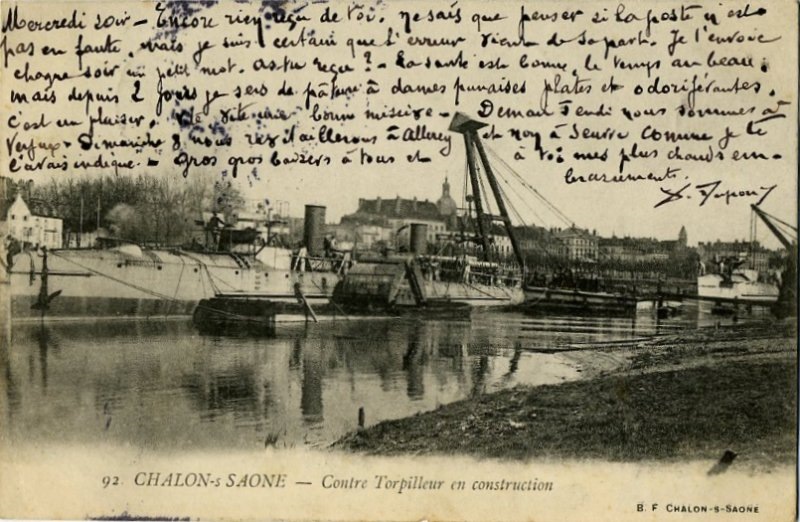 Mercredi soir - Encore rien reçu de toi. Ne sais que penser si la poste n'est
pas en faute, mais je suis certain que l'erreur vient de sa part. Je t'envoie
chaque soir un petit mot. As tu reçu ? - La santé est bonne, le temps au beau,
mais depuis 2 jours je sers de pâture à dames punaises plates et odoriférantes,
c'est un plaisir. Vite vite bonne - Demain Jendi nous sommes à
Verjux - Dimanche 8 nous ravitaillerons à Allerey et non à Seurre comme je te
l'avais indiqué. - Gros gros baisers à tous et à toi mes plus chauds em-
brassements.
Dupont
92. CHALON-s SAONE — Contre Torpilleur en construction
B. F CHALON-S-SAONE